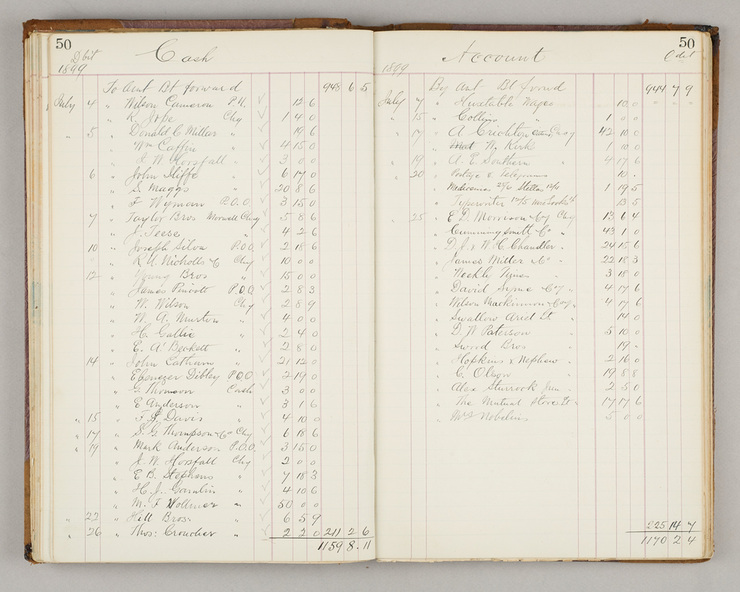 50
Debit
Cash
1899
To Amt Bt forward 948 6 5
July 4 " Wilson Cameron P.N. 12 6
" R Jobe Chq 1 4 0
" 5 " Donald C Miller " 19 6
" Wm Caffin " 4 15 0
" J. W. Horsfall " 3 0 0
6 " John Iliffe " 6 17 0
" S. Maggs " 20 8 6
" F Wymann P.O.O 3 15 0
7 " Taylor Bros Chq 5 8 6
" J. Teese " 4 2 6
10 " Joseph P.O.O 2 18 6
" R W Nicholls & C Chq 10 0 0
12 " Young Bros " 15 0 0
" James P.O.O 2 8 3
" W. Wilson Chq 2 8 9
" W. A. " 4 0 0
" H. Gallie " 2 4 0
" E. A' Beckett " 2 8 0
14 " John " 21 12 0
" Ebenezer Sibley P.O.O 2 19 0
" G Thomson Cash 3 0 0
" E Anderson " 3 1 6
" 15 " F. S. Davis " 4 10 0
" 17 " S. G. Thompson & Co Chq 6 18 6
" 19 " Mark Anderson P.O.O. 3 15 0
" J. W. Horsfall Chq 2 0 0
" E B. Stephens " 7 18 3
" H. J. " 4 10 6
" M. F " 50 0 0
" 22 " Hill Bros. " 6 5 9
" 26 " Thos. Croucher " 2 2 0 211 2 6
1159 8 11
50
Account
Credit
1899
By Amt Bt forwd 944 7 9
July 7 " Wages 10 0
" 15 " Collins " 1 0 0
" 17 " A Crichton 42 10 0
" W. Kirk 1 10 0
" 19 " A. E. Southern " 4 17 6
" 20 " Postage & Telegrams 10 .
" 1 19 5
" Typewriter 13 5
" 25 " E. D. & Co Chq 13 6 4
" Cumming Smith & Co " 43 1 0
" D. J. & W. H. Chandler " 24 15 6
" James Miller & Co " 22 18 3
" " 3 18 0
" David Syme & Co " 4 17 6
" Wilson Mackinnon & Co " 4 17 6
" Swallow Ariel Lt " 14 0
" D. W Paterson " 5 10 0
" Sword Bros " 19 .
" Hopkins & Nephew " 2 16 0
" C. Olson " 19 8 8
" Alex Sturrock Jun " 2 5 0
" The Mutual Store Lt " 17 17 6
" 5 0 0
225 14 7
1170 2 4